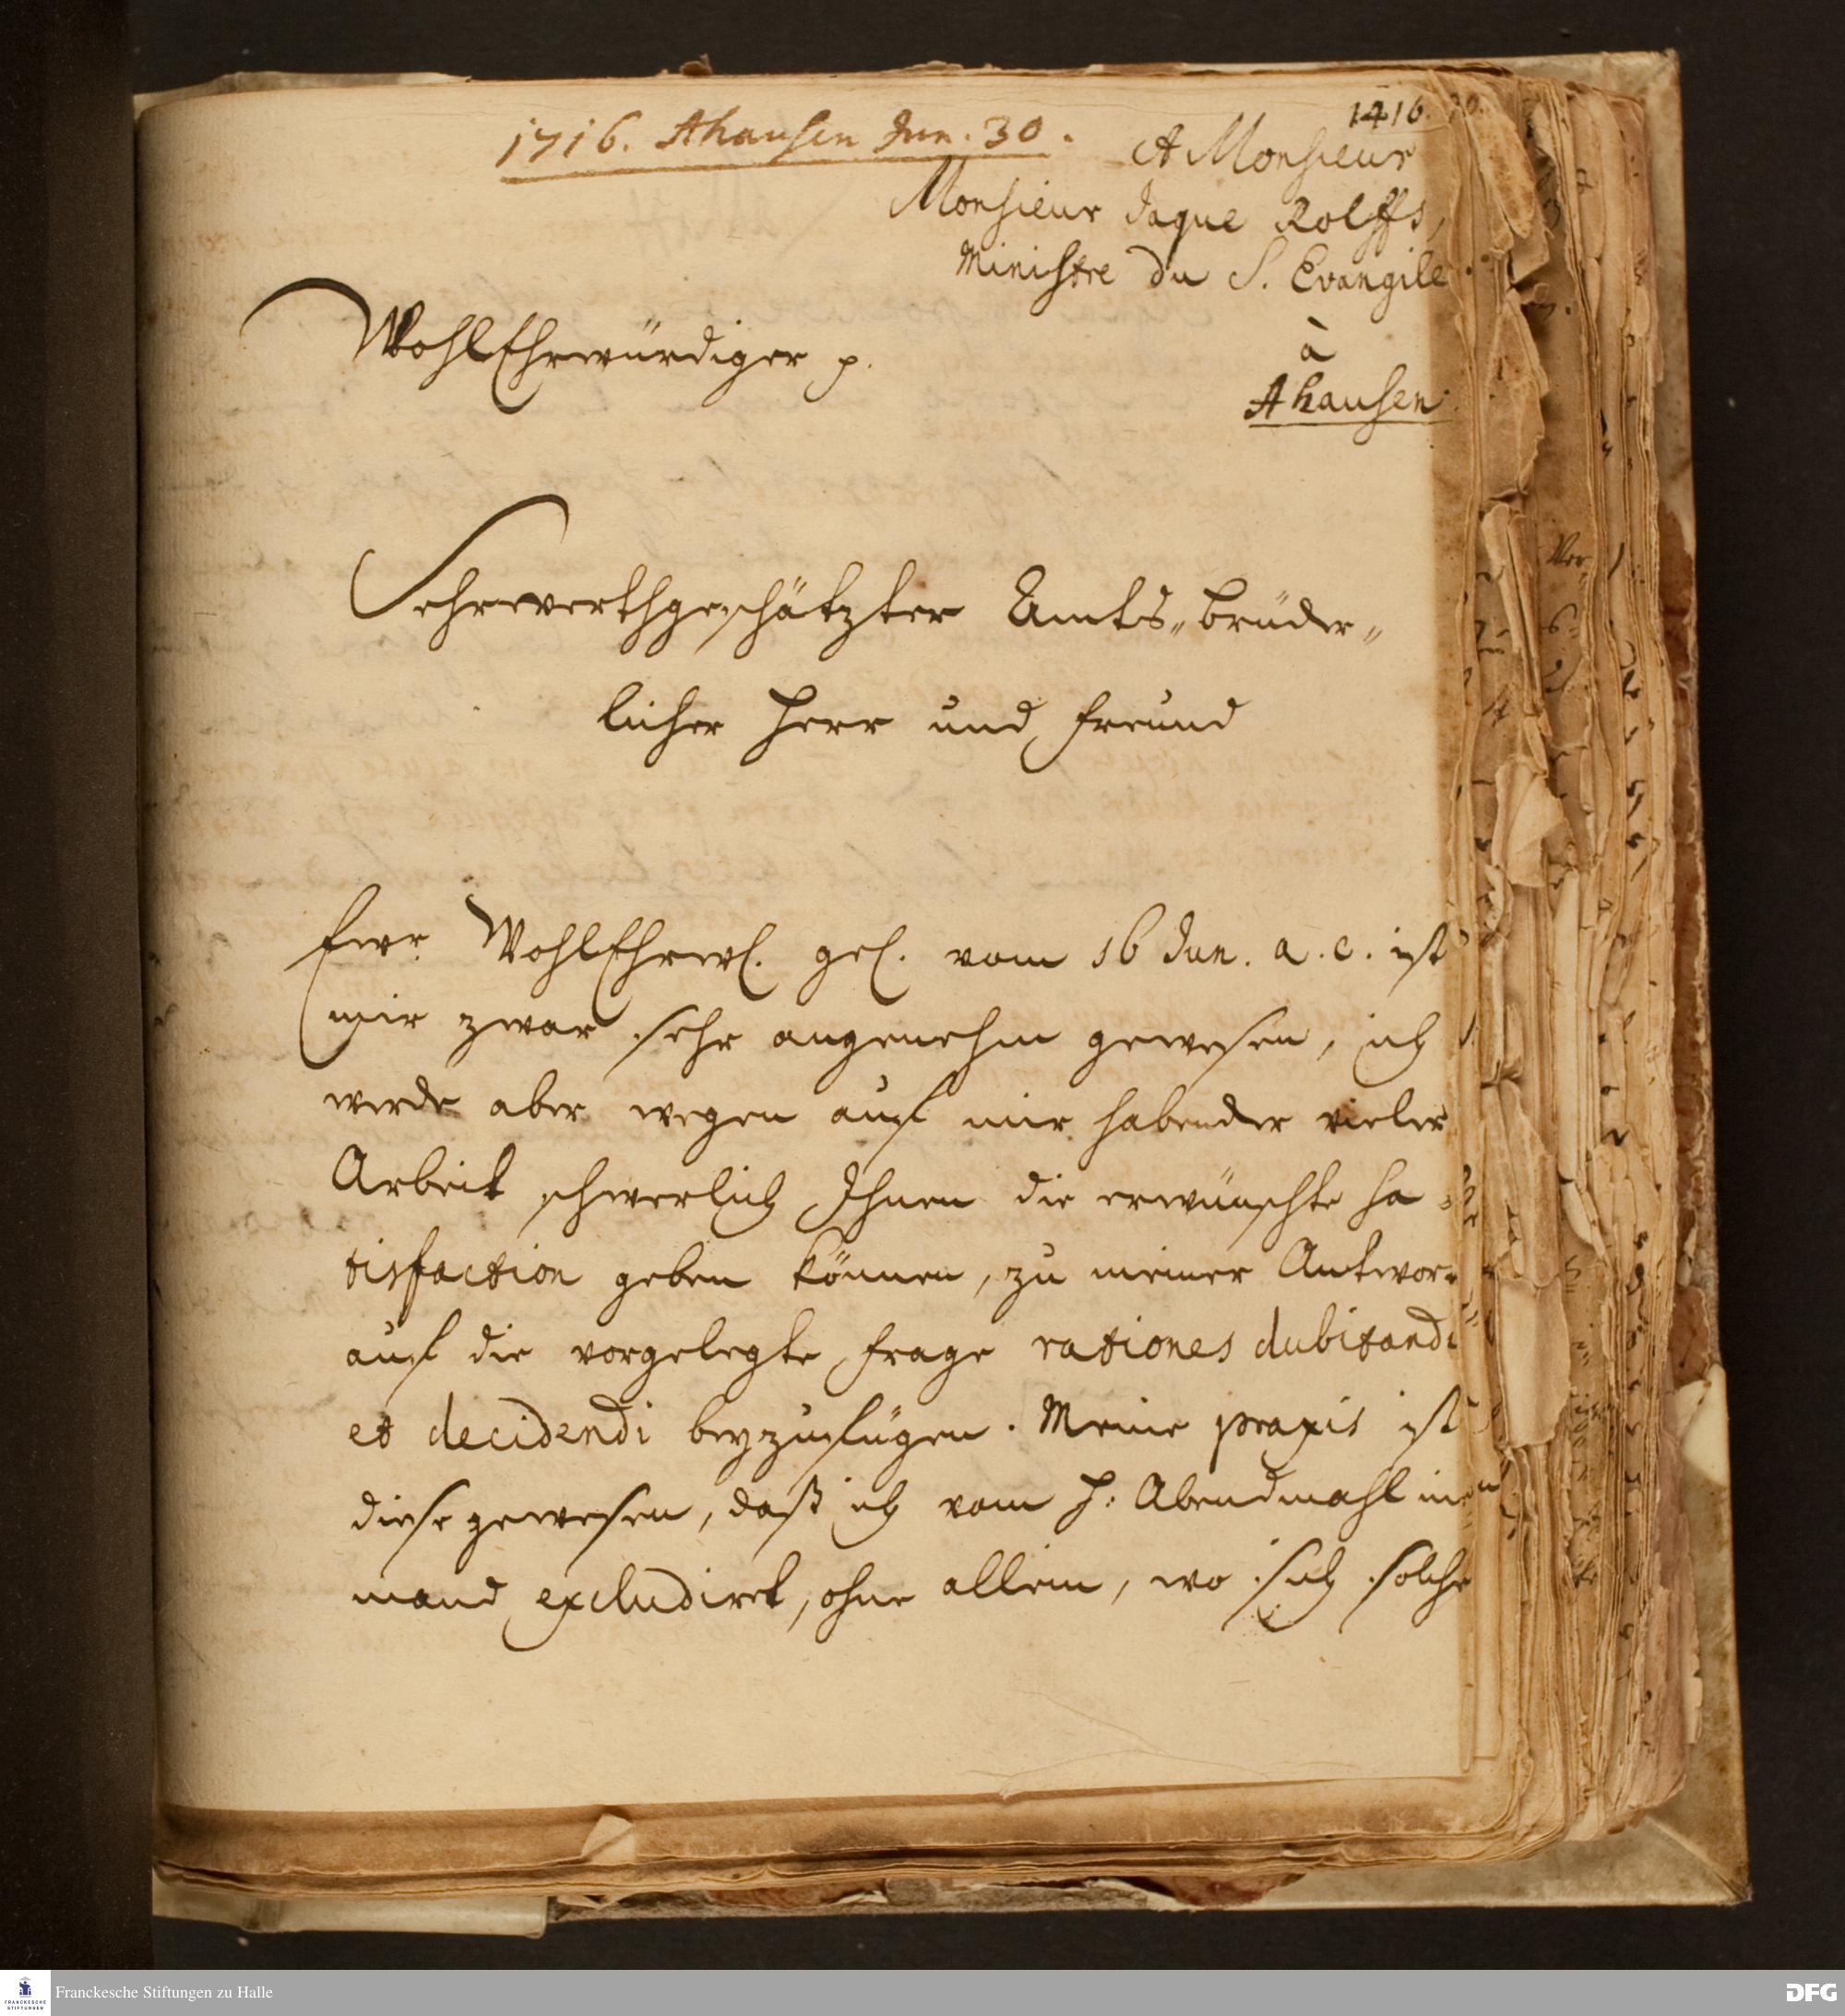 1716. Ahausen Jun. 30.
1416.
A Monsieur
Monsieur Jaque Rolffs,
Ministre du S. Evangile
à
Ahausen
WohlEhrwürdiger p.
Sehrwerthgeschätzter Amts„brüder„
licher Herr und Freund
Ewr. WohlEhrw. gel. vom 16 Jun. a. c. ist
mir zwar sehr angenehm gewesen, ich
werde aber wegen auf mir habender vieler
Arbeit schwerlich Ihnen die erwünschte sa-
tisfaction geben können, zu meiner Antwor
auf die vorgelegte Frage rationes dubitandi
et decidendi beyzufügen. Meine praxis ist
diese gewesen, daß ich vom H. Abendmahl
mand excludiret, ohne allein, wo sich solche
Franckesche Stiftungen zu Halle
FRANCKESCHE
STIFTUNGEN
DFG